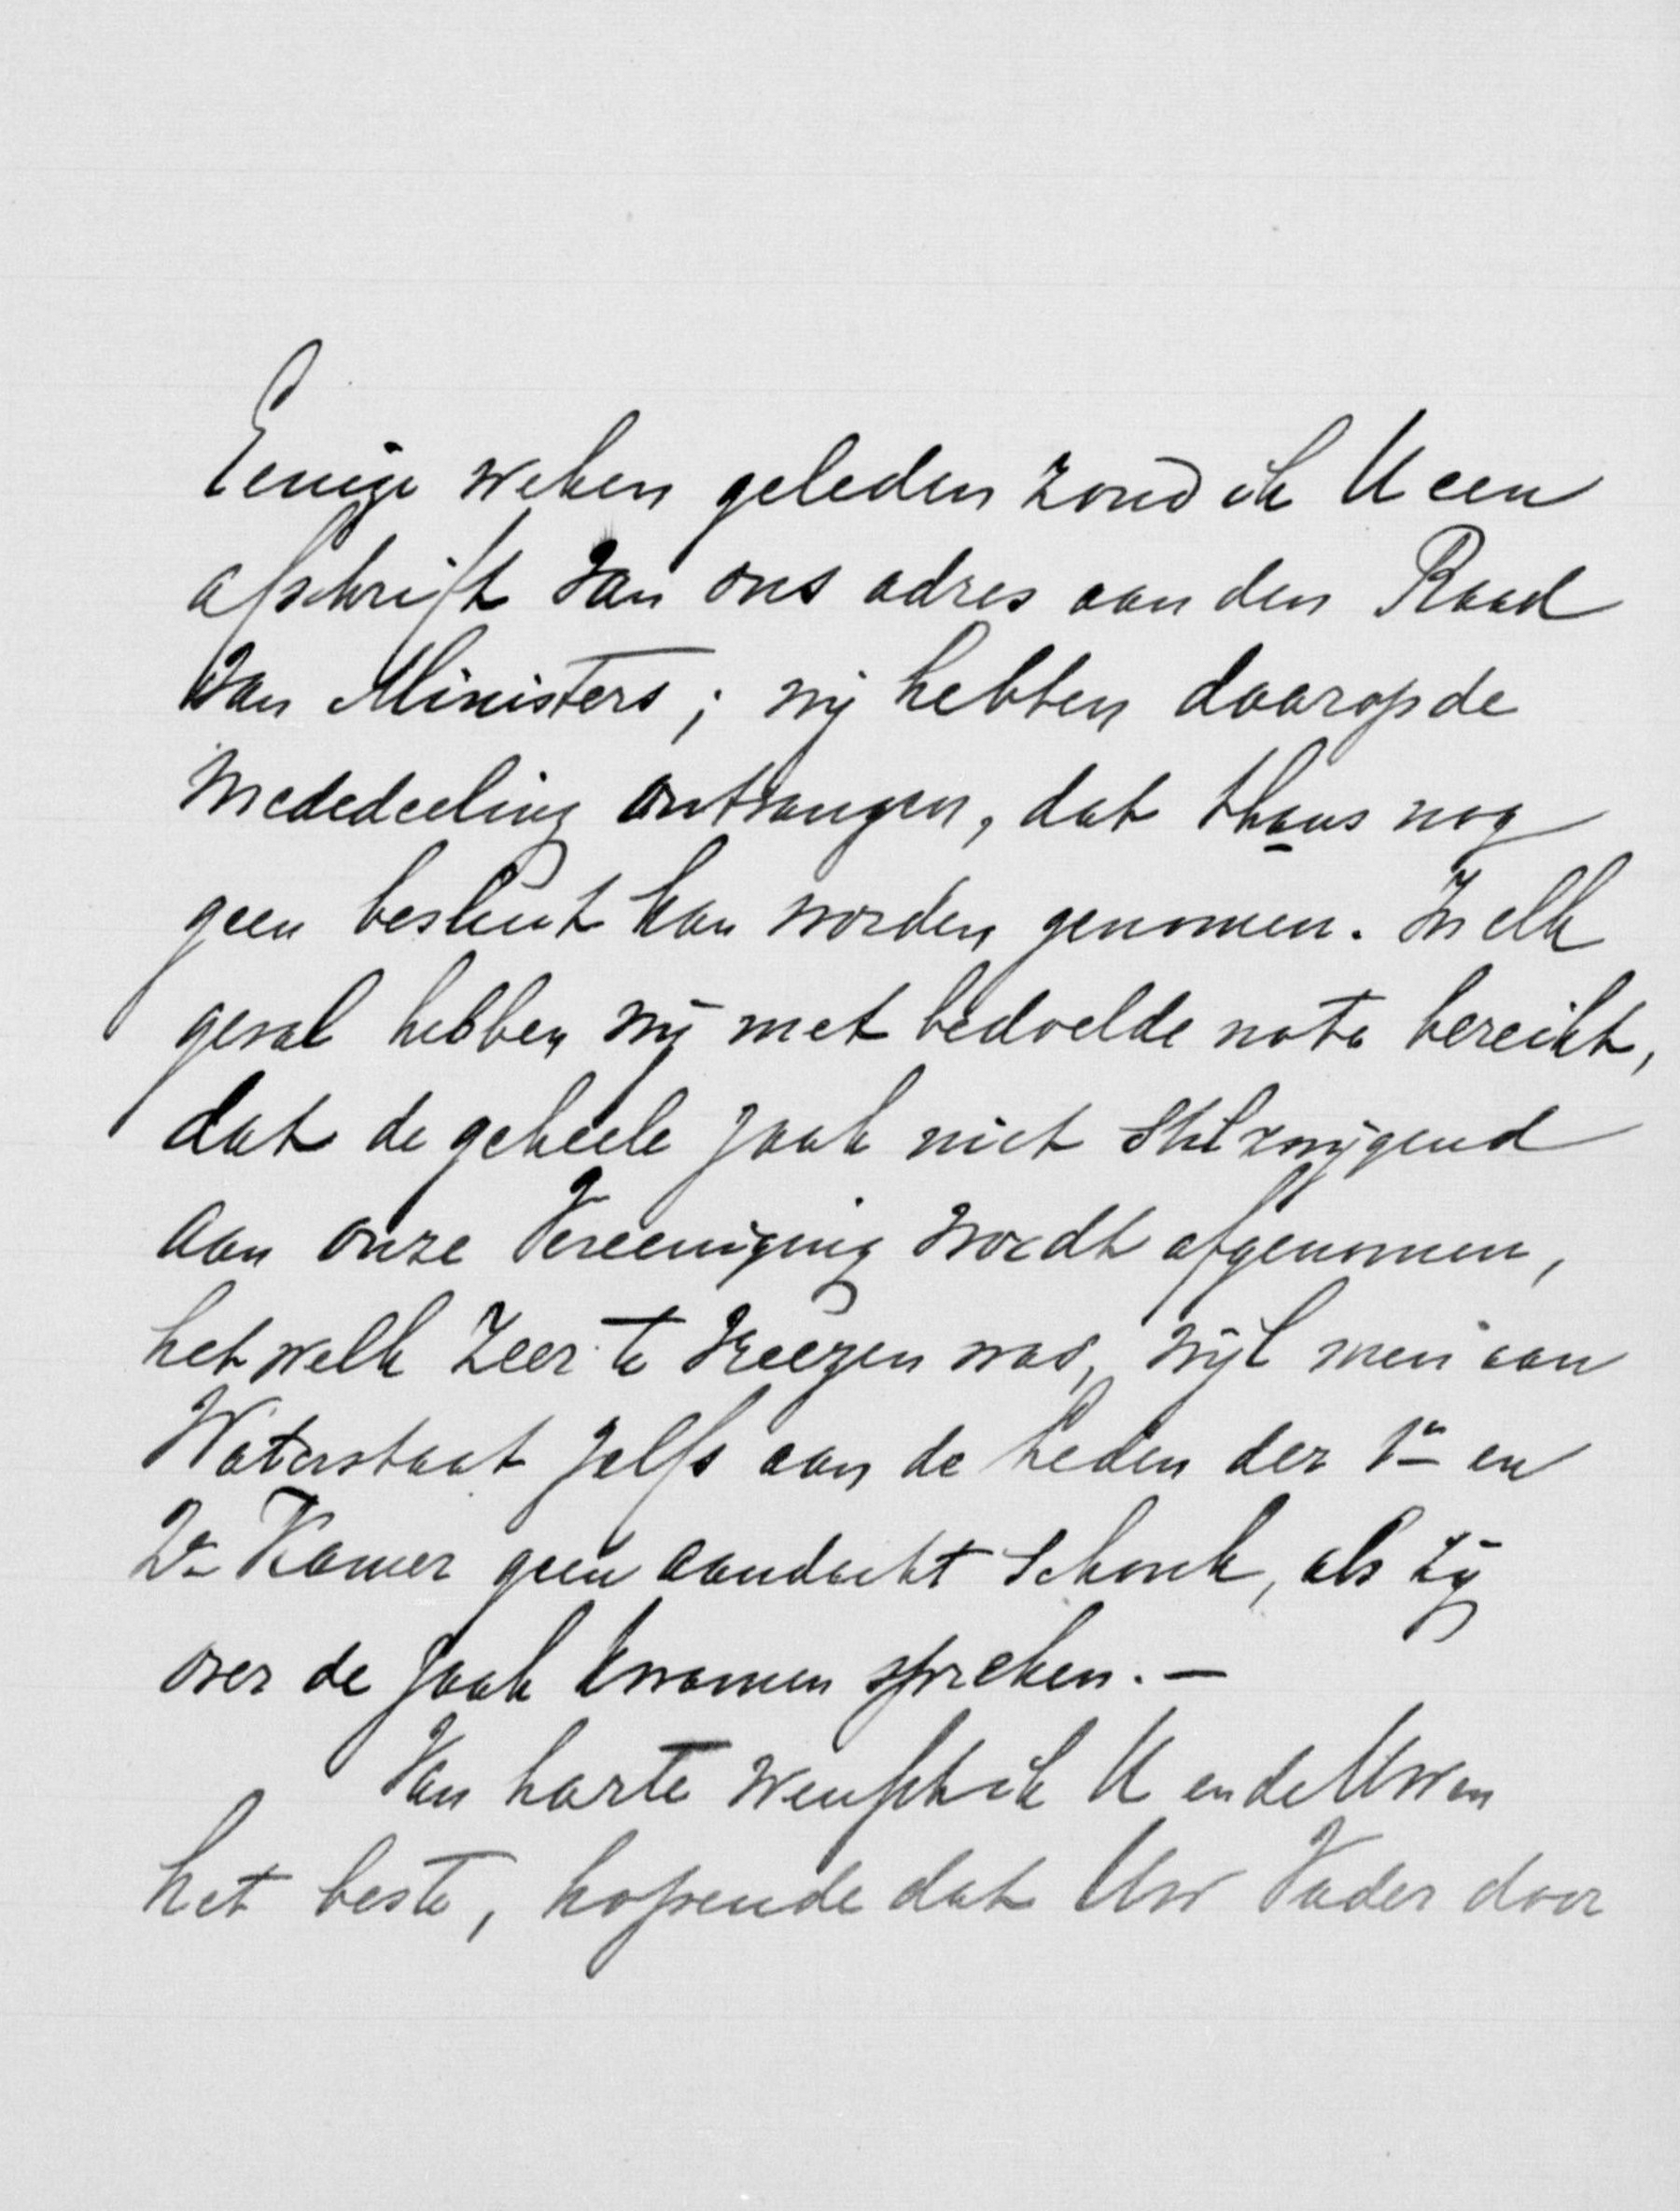 Eenige weken geleden zond ik U een
afschrift van ons adres aan den Raad
van Ministers; wij hebben daarop de
mededeeling ontvangen, dat thans nog
geen besluit kan worden genomen. In elk
geval hebben wij met bedoelde nota bereikt,
dat de geheele zaak niet stilzwijgend
aan onze Vereeniging wordt afgenomen,
het welk zeer te vreezen was, wijl men aan
Waterstaat zelfs aan de leden der 1e en
2e Kamer geen aandacht schonk, als zij
over de zaak kwamen spreken. —
Van harte wensch ik U en de Uwen
het beste, hopende dat Uw Vader door